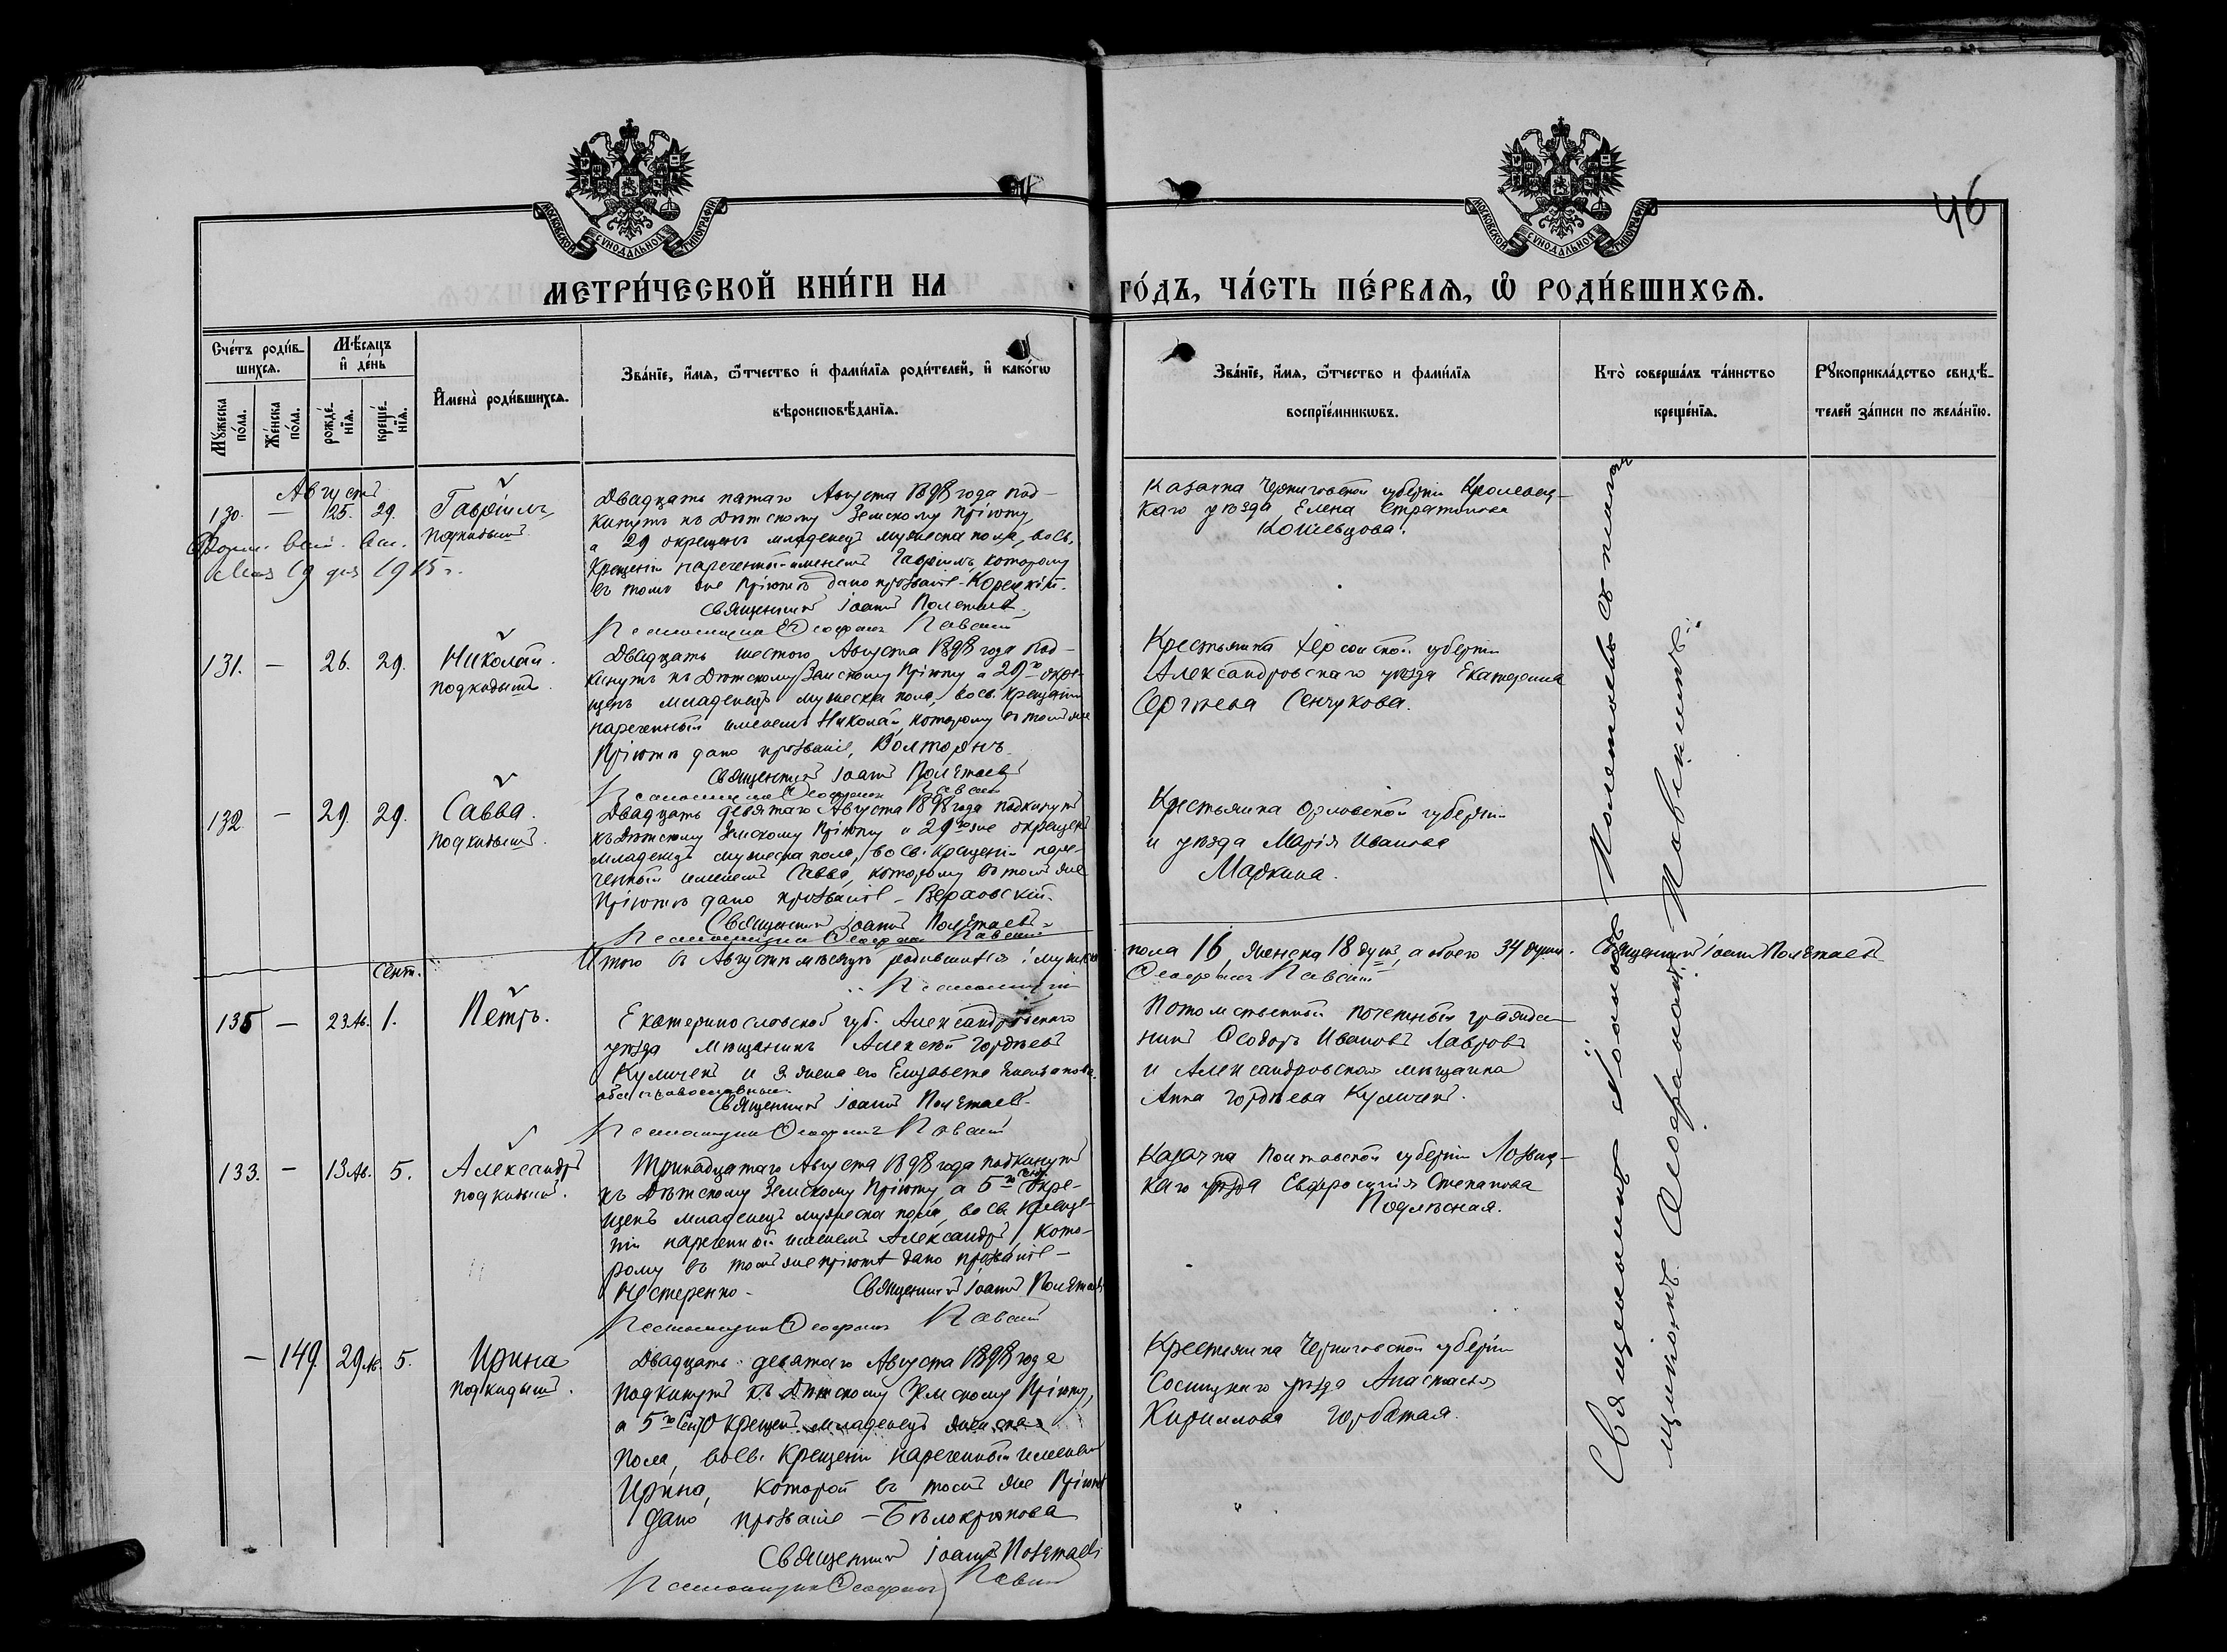 46
МОСКОВСКОЙ СѴНОДАЛЬНОЙ ТИПОГРАФІИ
МОСКОВСКОЙ СѴНОДАЛЬНОЙ ТИПОГРАФІИ
МЕТРИ́ЧЕСКОЙ КНИ́ГИ НА ГО́ДЪ, ЧА́СТЬ ПЕ́РВАЯ, Ѡ РОДИ́ВШИХСЯ.
Сче́тъ роди́в-
шихся.
Мꙋ́жеска по́ла.
Же́нска по́ла.
Мѣ́сяцъ
и де́нь
рожде́-
нїя.
креще́-
нїя.
Имена̀ роди́вшихся.
Зва́нїе, и́мя, ѻ҆́тчество и фами́лїя роди́телей, и како́гѡ
вѣроисповѣ́данїя.
Зва́нїе, и́мя, ѻ҆́тчество и фами́лїя
воспрїе́мникѡвъ.
Кто̀ соверша́лъ та́инство
креще́нїя.
Рꙋкоприкла́дство свидѣ́-
телей за́писи по жела́нїю.
Августъ
130. — 25. 29.
Гавріилъ
подкидышъ
19 1915 г.
Двадцать пятаго Августа 1898 года под-
кинутъ къ Дѣтскому Земскому Пріюту,
а 29 окрещенъ младенецъ мужеска пола, во св.
Крещеніи нареченный именемъ Гавріилъ, которому
въ томъ же Пріютѣ дано прозваніе - Корецкій.
Священникъ Іоаннъ Полетаевъ
Псаломщикъ Ѳеофанъ Павскій
Казачка Черниговской губерніи Кролевец-
каго уѣзда Елена Стратонова
131. — 26. 29.
Николай.
подкидышъ.
Двадцать шестого Августа 1898 года под-
кинутъ къ Дѣтскому Земскому Пріюту а 29го окре-
щенъ младенецъ мужеска пола, во св. Крещеніи
нареченный именемъ Николай, которому въ томъ же
Пріютѣ дано прозваніе,
Священникъ Іоаннъ Полетаевъ
Псаломщикъ Ѳеофанъ Павскій
Крестьянка Херсонской губерніи
Александровскаго уѣзда Екатерина
Сергѣева Сенчукова.
132. — 29. 29.
Савва.
подкидышъ.
Двадцать девятаго Августа 1898 года подкинутъ
къ Дѣтскому Земскому Пріюту и 29го же окрещенъ
младенецъ мужеска пола, во св. Крещеніи наре-
ченный именемъ Савва, которому въ томъ же
Пріютѣ дано прозваніе - Верховскій.
Священникъ Іоаннъ Полетаевъ
Псаломщикъ Ѳеофанъ Павскій
Крестьянка Орловской губерніи
и уѣзда Марія Иванова
Маркина.
Итого въ Августѣ мѣсяцѣ родившихся: мужска пола 16, женска 18 душъ, а обоего 34 души. Священникъ Іоаннъ Полетаевъ
Псаломщикъ Ѳеофанъ Павскій
Сент.
135 — 23 Ав. 1.
Петръ.
Екатеринославской губ. Александровскаго
уѣзда мѣщанинъ Алексѣй Гордѣевъ
Куличенъ и жена его Елизавета
оба православные.
Священникъ Іоаннъ Полетаевъ.
Псаломщикъ Ѳеофанъ Павскій
Потомственный почетный гражда-
нинъ Ѳеодоръ Ивановъ Лавровъ
и Александровская мѣщанка
Анна Гордѣева Куличенъ.
133. — 13 Ав. 5.
Александръ
подкидышъ.
Тринадцатаго Августа 1898 года подкинутъ
къ Дѣтскому Земскому Пріюту, а 5го Сент. окре-
щенъ младенецъ мужеска пола, во св. Креще-
ніи нареченный именемъ Александръ, кото-
рому въ томъ же пріютѣ дано прозваніе -
Нестеренко - Священникъ Іоаннъ Полетаевъ
Псаломщикъ Ѳеофанъ Павскій
Казачка Полтавской губерніи Лохвиц-
каго уѣзда Евфросинія Степанова
Подлѣсная.
— 149. 29 Ав. 5.
Ирина
подкидышъ.
Двадцать девятаго Августа 1898 года
подкинутъ къ Дѣтскому Земскому Пріюту,
а 5го Сент. окрещенъ младенецъ женска
пола, во св. Крещеніи нареченный именемъ
Ирина, которой въ томъ же Пріютѣ
дано прозваніе - Бѣлокрюкова
Священникъ Іоаннъ Полетаевъ
Псаломщикъ Ѳеофанъ Павскій
Крестьянка Черниговской губерніи
Сосницкаго уѣзда Анастасія
Кириллова Горбатая.
Священникъ Іоаннъ Полетаевъ съ псало-
мщикомъ Ѳеофаномъ Павскимъ.